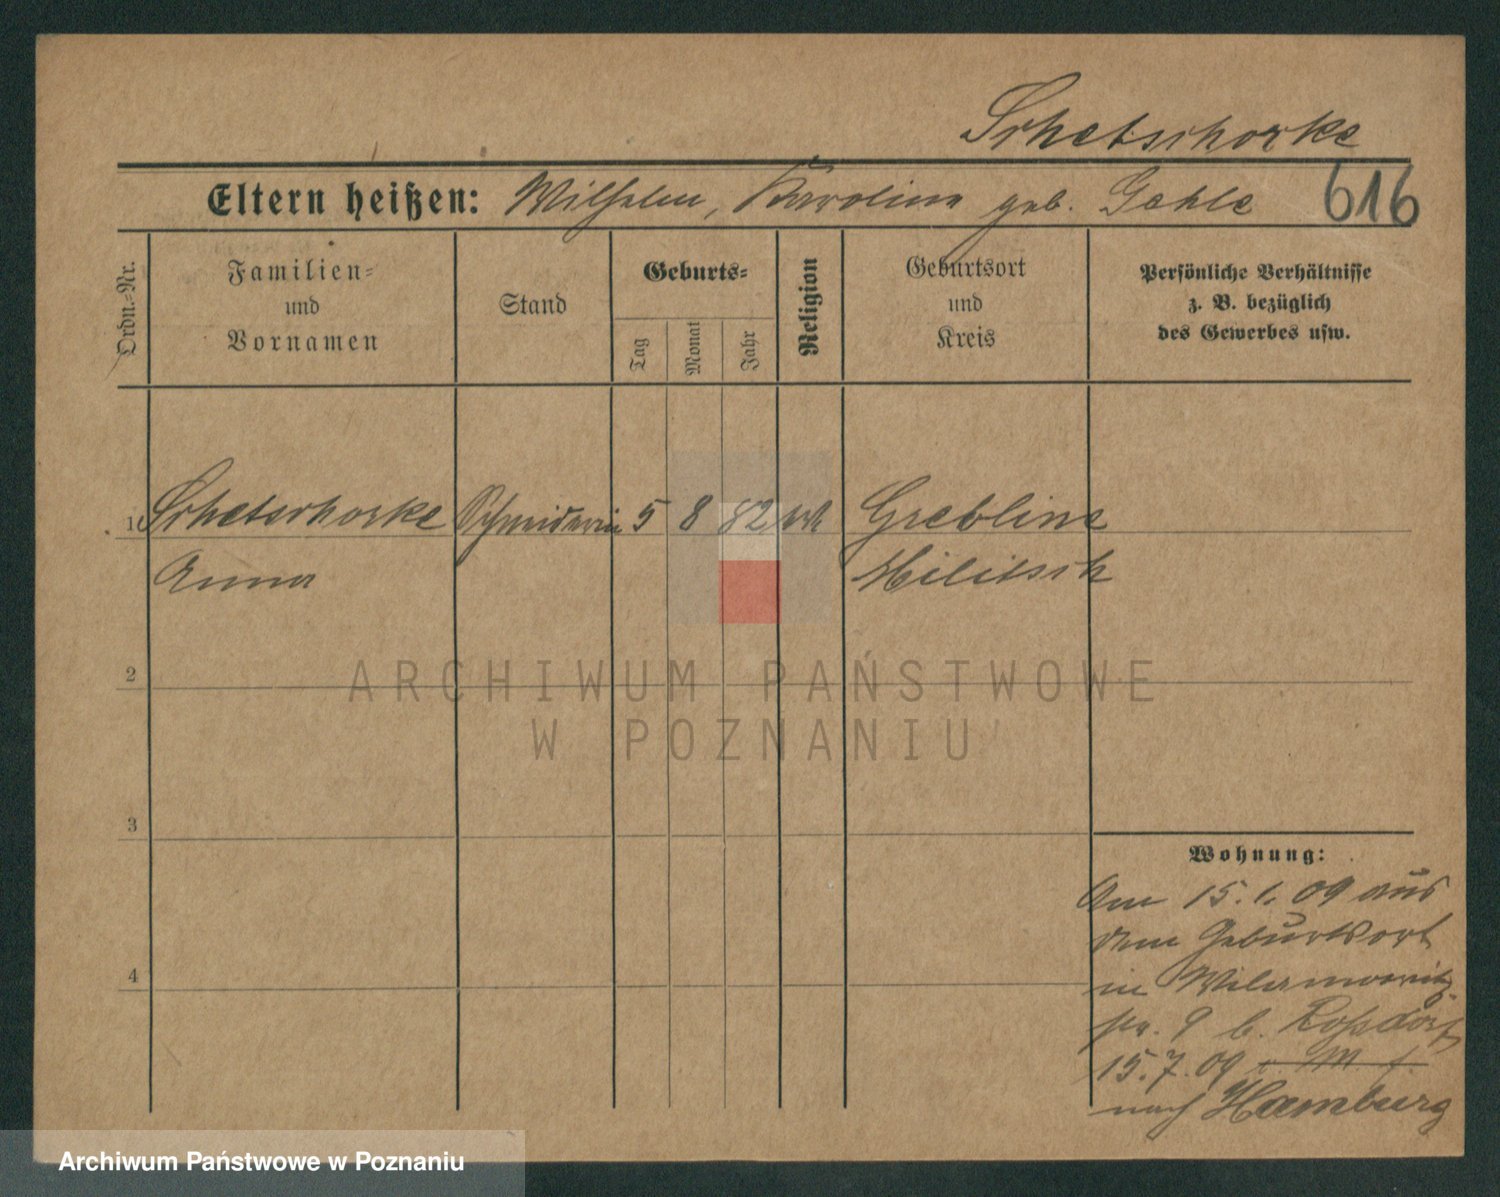 Schetschorke
Eltern heißen: Wilhelm, Karoline geb. Gehle 616
Ordn.-Nr.
Familien-
und
Vornamen
Stand
Geburts-
Tag
Monat
Jahr
Religion
Geburtsort
und
Kreis
Persönliche Verhältnisse
z. B. bezüglich
des Gewerbes usw.
1 Schetschorke Schneiderin 5 8 82 Grebline
Anna Militsch
2
3
4
Wohnung:
Am 15.1.09 aus
dem Geburtsort
in Wilamowitz
str. 9 b. Roßdorf
15.7.09
nach Hamburg
ARCHIWUM PAŃSTWOWE
W POZNANIU
Archiwum Państwowe w Poznaniu